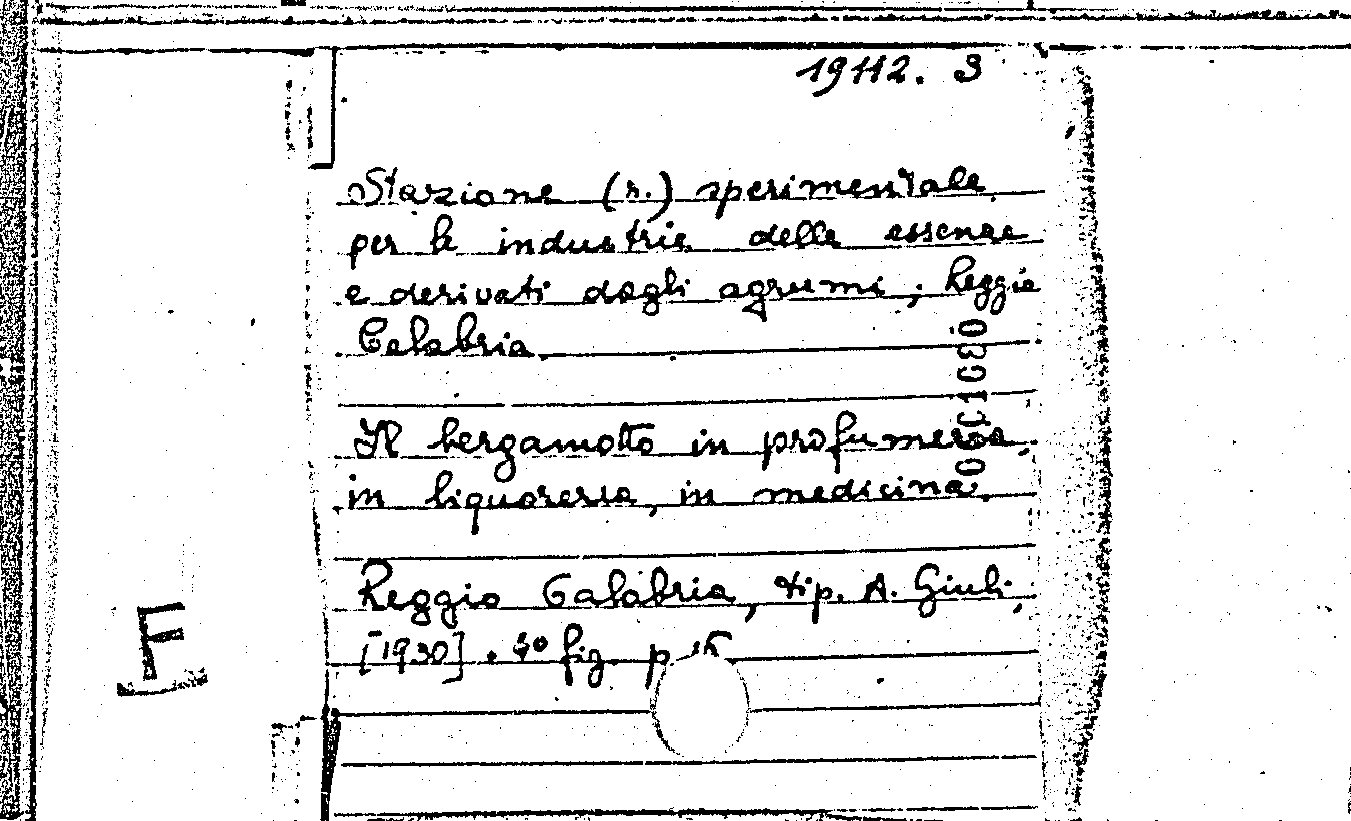 19112. 3
Stazione (r.) sperimentale
per le industrie delle essenze
e derivati dagli agrumi, Reggio
Calabria.
Il bergamotto in profumeria,
in liquoreria, in medicina.
Reggio Calabria, tip. A. Giuli,
[1930]. fig. p. 15
F